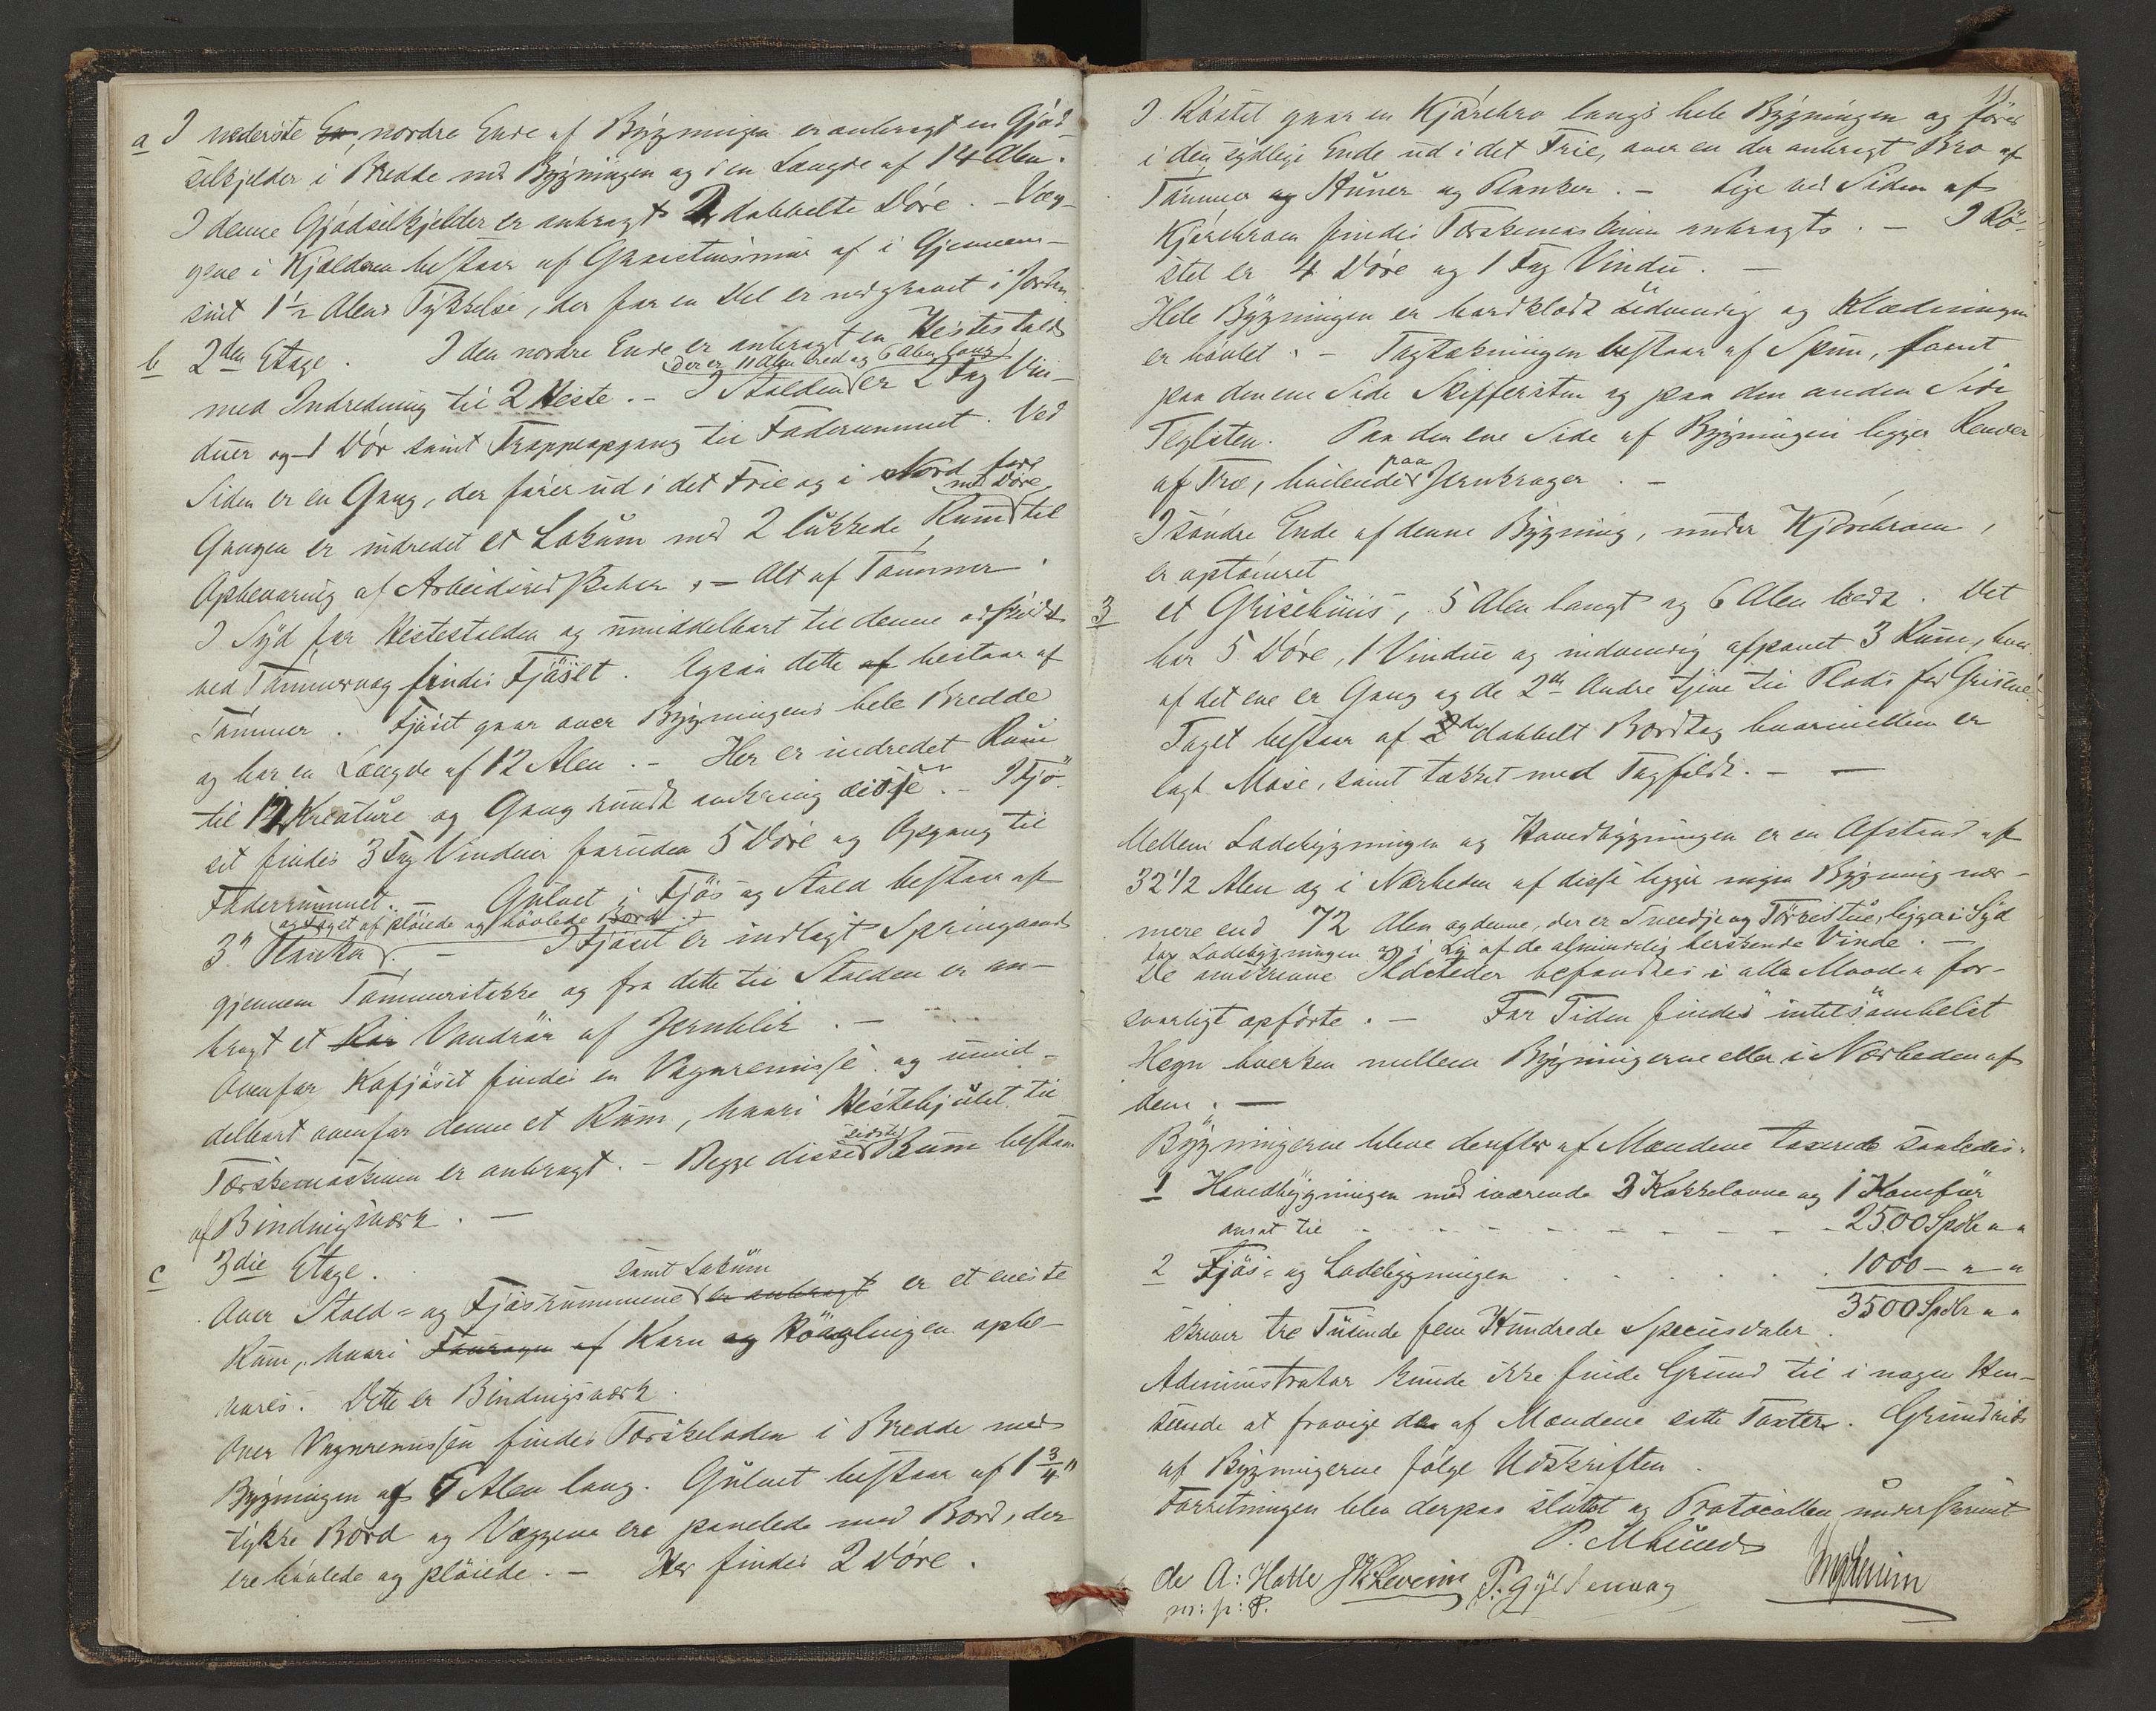 a I nederste En nordre Ende af Bygningen er anbragt en Gjød-
selkjelder i Bredde med Bygningen og i en Længde af 14 Alen.
I denne Gjødselkjelder er anbragt 2 dobbelte Døre. – Væg-
gene i Kjælderen bestaar af Graastensmur af i Gjennem-
snit 1½ Alens Tykkelse, der for en Del er nedgravet i Jorden.
b 2den Etage. I den nordre Ende er anbragt en Hestestald
der er 11 Alen bred og 6 Alen lang
med Indredning til 2 Heste. – I Stalden er 2 Fag Vin-
duer og 1 Dør samt Trappeopgang til Foderrummet. Ved
Siden er en Gang, der fører ud i det Frie og i Nord for
med Døre
Gangen er indredet et Lokum med 2 lukkede Rum til
Opbevaring af Arbeidsredskaber, – Alt af Tømmer.
I Syd for Hestestalden og umiddelbart til denne adskildt
ved Tømmervæg findes Fjøset. Ogsaa dette af bestaar af
Tømmer. Fjøset gaar over Bygningens hele Bredde
og har en Længde af 12 Alen. – Her er indredet Rum
til 12 Kreature og Gang rundt omkring disse. – I Fjø-
set findes 3 Fag Vinduer foruden 5 Døre og Opgang til
Foderrummet. – Gulvet i Fjøs og Stald bestaar af
og Taget af pløiede og høvlede Bord
3" Planker. – I Fjøset er indlagt Springvand
gjennem Tømmerstokke og fra dette til Stalden er an-
bragt et Rør Vandrør af Jernblik. –
Ovenfor Kofjøset findes en Vognremisse og umid-
delbart ovenfor denne et Rum, hvori Hestehjulet til
sidste
Tærskemaskinen er anbragt. – Begge disse Rum bestaar
af Bindingsværk. –
c 3die Etage.
samt Lokum
Over Stald- og Fjøsrummene er anbragt er et eneste
Rum, hvori Fouragen af Korn og Høavlingen opbe-
vares. Dette er Bindingsværk.
Over Vognremissen findes Tærskeladen i Bredde med
Bygningen af 7 Alen lang. Gulvet bestaar af 1¾"
tykke Bord og Væggene ere panelede med Bord, der
ere høvlede og pløiede. – Her findes 2 Døre.
11.
I Røstet gaar en Kjørebro langs hele Bygningen og fører
i den sydlige Ende ud i det Frie, over en der anbragt Bro af
Tømmer og Stuver og Planker. – Lige ved Siden af
Kjørebroen findes Tærskemaskinen anbragt. – I Rø-
stet er 4 Døre og 1 Fag Vindu. –
Hele Bygningen er bordklædt udvendig og Klædningen
er høvlet. – Tagtækningen bestaar af Spon, samt
paa den ene Side Skiffersten og paa den anden Side
Teglsten. Paa den ene Side af Bygningen ligger Render
paa
af Træ, hvilende Jernkroger. –
I søndre Ende af denne Bygning, under Kjørebroen,
er optømret
3 et Grisehuus, 5 Alen langt og 6 Alen bredt. Det
har 5 Døre, 1 Vindue og indvendig afpanet 3 Rum, hvor-
af det ene er Gang og de 2de Andre tjene til Plads for Grisene.
Taget bestaar af 2de dobbelt Bordtag hvorimellem er
lagt Mose, samt tækket med Tagfildt. –
Mellem Ladebygningen og Hovedbygningen er en Afstand af
32 1/2 Alen og i Nærheden af disse ligger ingen Bygning nær-
mere end 72 Alen og denne, der er Smedje og Tørrestue, ligger i Syd
for Ladebygningen og i Ly af de almindelig herskende Vinde. –
De omskrevne Ildsteder befandtes i alle Maader for-
svarligt opførte. – For Tiden findes intetsomhelst
Hegn hverken mellem Bygningerne eller i Nærheden af
dem. –
Bygningerne bleve derefter af Mændene taxerede saaledes:
1 Hovedbygningen med iværende 3 Kakkelovne og 1 Komfür
ansat til - - - - - - 2500 Spdlr " "
2 Fjøs- og Ladebygningen . . . . . 1000 – " "
3500 Spdlr " "
skriver tre Tusinde fem Hundrede Speciesdaler.
Administrator kunde ikke finde Grund til i nogen Hen-
seende at fravige de af Mændene satte Taxter. Grundrids
af Bygningerne følge Udskriften.
Forretningen blev derpaa sluttet og Protocollen underskrevet
P. M. Lund
Ole A: Holte J. K. Levernes P. Gyldenvog
m: p: P.